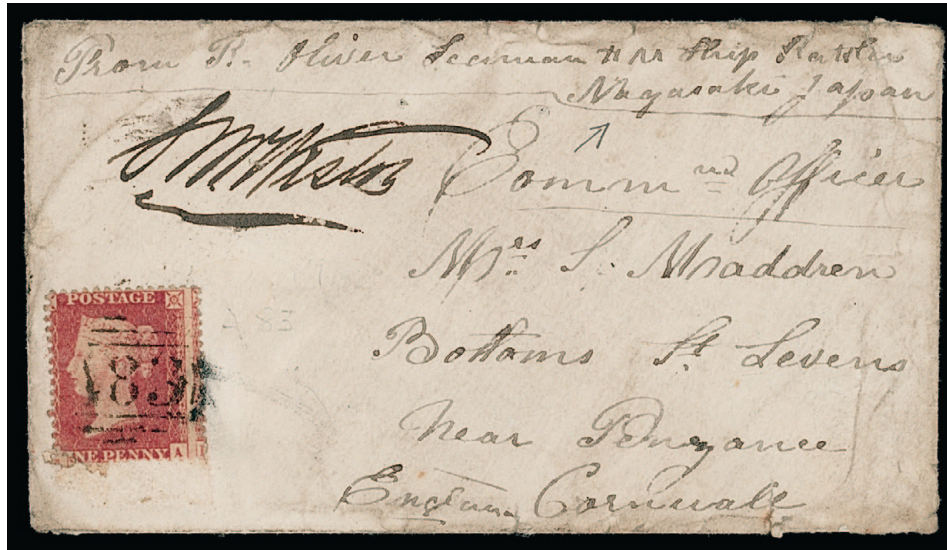 From R. Oliver Seaman HM Ship Rattler
Nagasaki Japan
Comm nd Officer
Mrs S. Maddren
Bottoms St Levens
Near Penzance
England Cornwall
POSTAGE
A83
A 83
ONE PENNY A